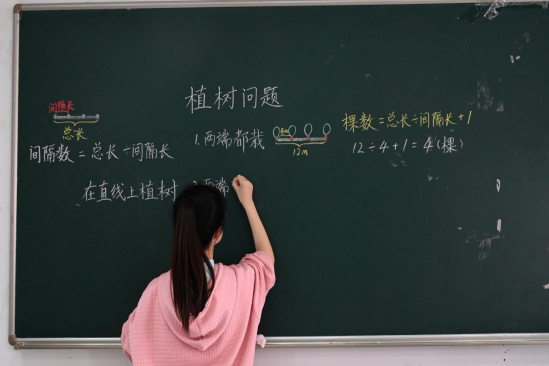 植树问题
间隔长
总长
间隔数 = 总长÷间隔长
1.两端都栽
4m
12m
棵数=总长÷间隔长+1
12÷4+1=4(棵)
在直线上植树
两端